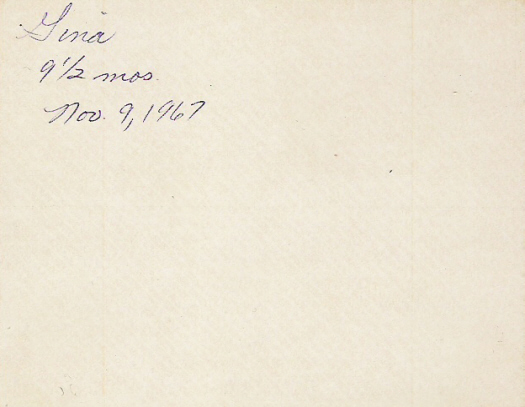 Gina
9 1/2 mos.
Nov. 9, 1967